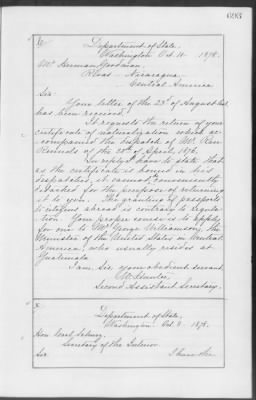 693
Department of State,
Washington Oct. 11 1876.
Mr. Herman Goodman,
Rivas - Nicaragua,
Central America
Sir:
Your letter of the 23d of August last,
has been received.
It requests the return of your
certificate of naturalization which ac-
companied the despatch of Mr. Ran
Runnels of the 28th of April, 1876.
In reply I have to state that
as the certificate is bound in his
despatches, it cannot conveniently
detached for the purpose of returning
it to you. The granting of passports
to citizens abroad is contrary to regula-
tion. Your proper course is to apply
for one to Mr. George Williamson, the
Minister of the United States in Central
America, who usually resides at
Guatemala
I am, Sir, your obedient servant
W. Hunter
Second Assistant Secretary.
Department of State,
Washington, Oct. 11 1876.
Hon.
Secretary of the Interior.
Sir I have the